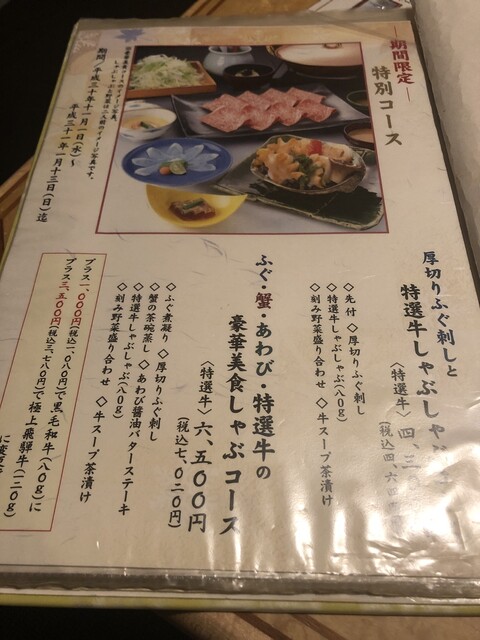 ―期間限定―
特別コース
期間／平成三十年十一月一日(水)～
平成三十一年一月十三日(日)迄
厚切りふぐ刺しと
特選牛しゃぶしゃぶ
〈特選牛〉四、三
(税込四、六四
◇先付 ◇厚切りふぐ刺し
◇特選牛しゃぶしゃぶ(八〇g)
◇刻み野菜盛り合わせ ◇牛スープ茶漬け
ふぐ・蟹・あわび・特選牛の
豪華美食しゃぶコース
〈特選牛〉六、五〇〇円
(税込七、〇二〇円)
◇ふぐ煮凝り ◇厚切りふぐ刺し
◇蟹の茶碗蒸し ◇あわび醤油バターステーキ
◇特選牛しゃぶしゃぶ(八〇g)
◇刻み野菜盛り合わせ ◇牛スープ茶漬け
プラス一、〇〇〇円(税込一、〇八〇円)で黒毛和牛(八〇g)に
プラス三、五〇〇円(税込三、七八〇円)で極上飛騨牛(一二〇g)